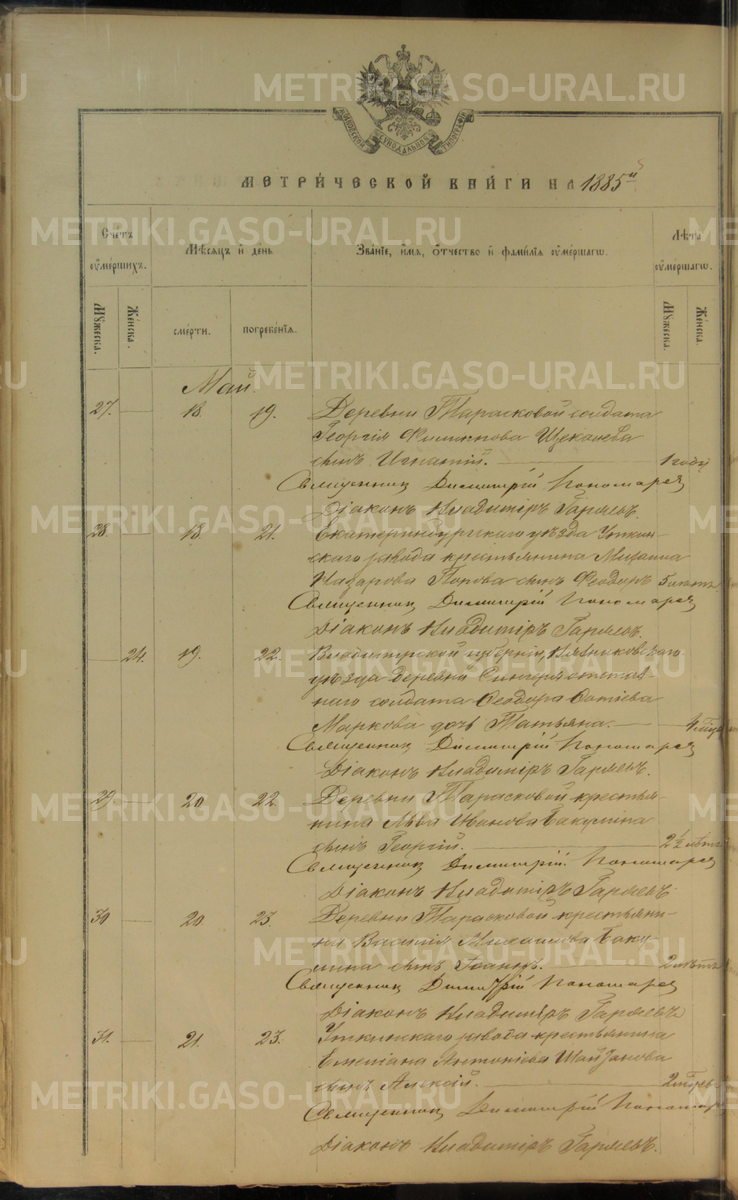 МОСКОВСКОЙ СѴНОДАЛЬНОЙ ТИПОГРАФІИ
МЕТРИ́ЧЕСКОЙ КНИ́ГИ НА 1885 й
Сче́тъ оу҆ме́ршихъ.
Мѣ́сяцъ и҆ де́нь
Зва́ніе, и҆́мя, ѻ҆́тчество и҆ фами́лія оу҆ме́ршагѡ.
Лѣ́та оу҆ме́ршагѡ.
Мꙋ́жеска.
Же́нска.
сме́рти.
погребе́нія.
Мꙋ́жеска.
Же́нска.
Май.
27. 18. 19. Деревни Тарасковой солдата
Георгія Филиппова Щекалева
сынъ Игнатій. 1 году
Священникъ Димитрій Пономарев
Діаконъ Владиміръ Гаряевъ.
28. 18. 21. Екатеринбургскаго уѣзда Уткин-
скаго завода крестьянина Михаила
Назарова Попова сынъ Феодоръ 5 лѣтъ
Священникъ Димитрій Пономарев
Діаконъ Владиміръ Гаряевъ.
24. 19. 22. Владимірской губерніи, Вязниковскаго
уѣзда деревни отстав-
наго солдата Феодора
Маркова дочь Татьяна. 4
Священникъ Димитрій Пономарев
Діаконъ Владиміръ Гаряевъ.
29. 20. 22. Деревни Тарасковой крестья-
нина Льва Иванова Бакулина
сынъ Георгій. 2½ лѣтъ
Священникъ Димитрій Пономарев
Діаконъ Владиміръ Гаряевъ.
30. 20. 23. Деревни Тарасковой крестьяни-
на Василія Михаилова Баку-
лина сынъ Іоаннъ. 2 лѣтъ
Священникъ Димитрій Пономарев
Діаконъ Владиміръ Гаряевъ.
31. 21. 23. Уткинскаго завода крестьянина
Емеліана Антоніева
сынъ Алексій. 2
Священникъ Димитрій Пономар
Діаконъ Владиміръ Гаряевъ.
METRIKI.GASO-URAL.RU